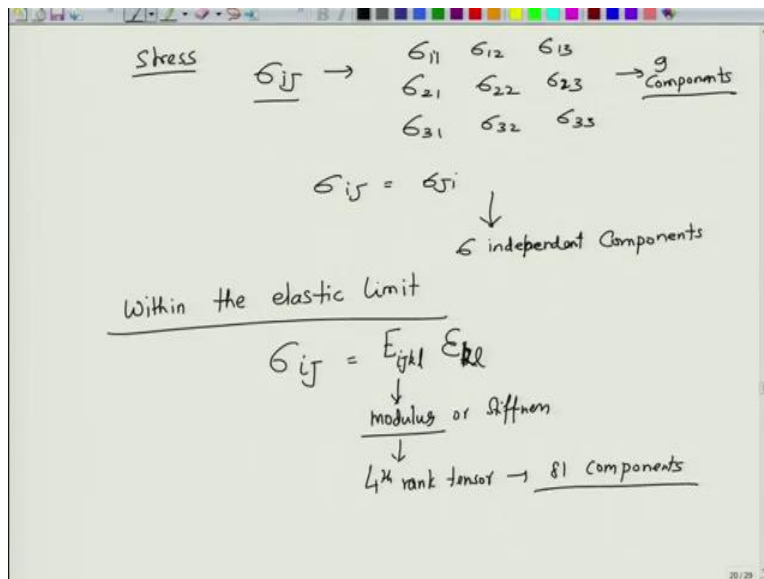 Stress σij → σ11 σ12 σ13
σ21 σ22 σ23 → 9 Components
σ31 σ32 σ33
σij = σji
↓
6 independent Components
Within the elastic limit
σij = Eijkl εkl
↓
modulus or stiffness
↓
4th rank tensor → 81 components
20/29